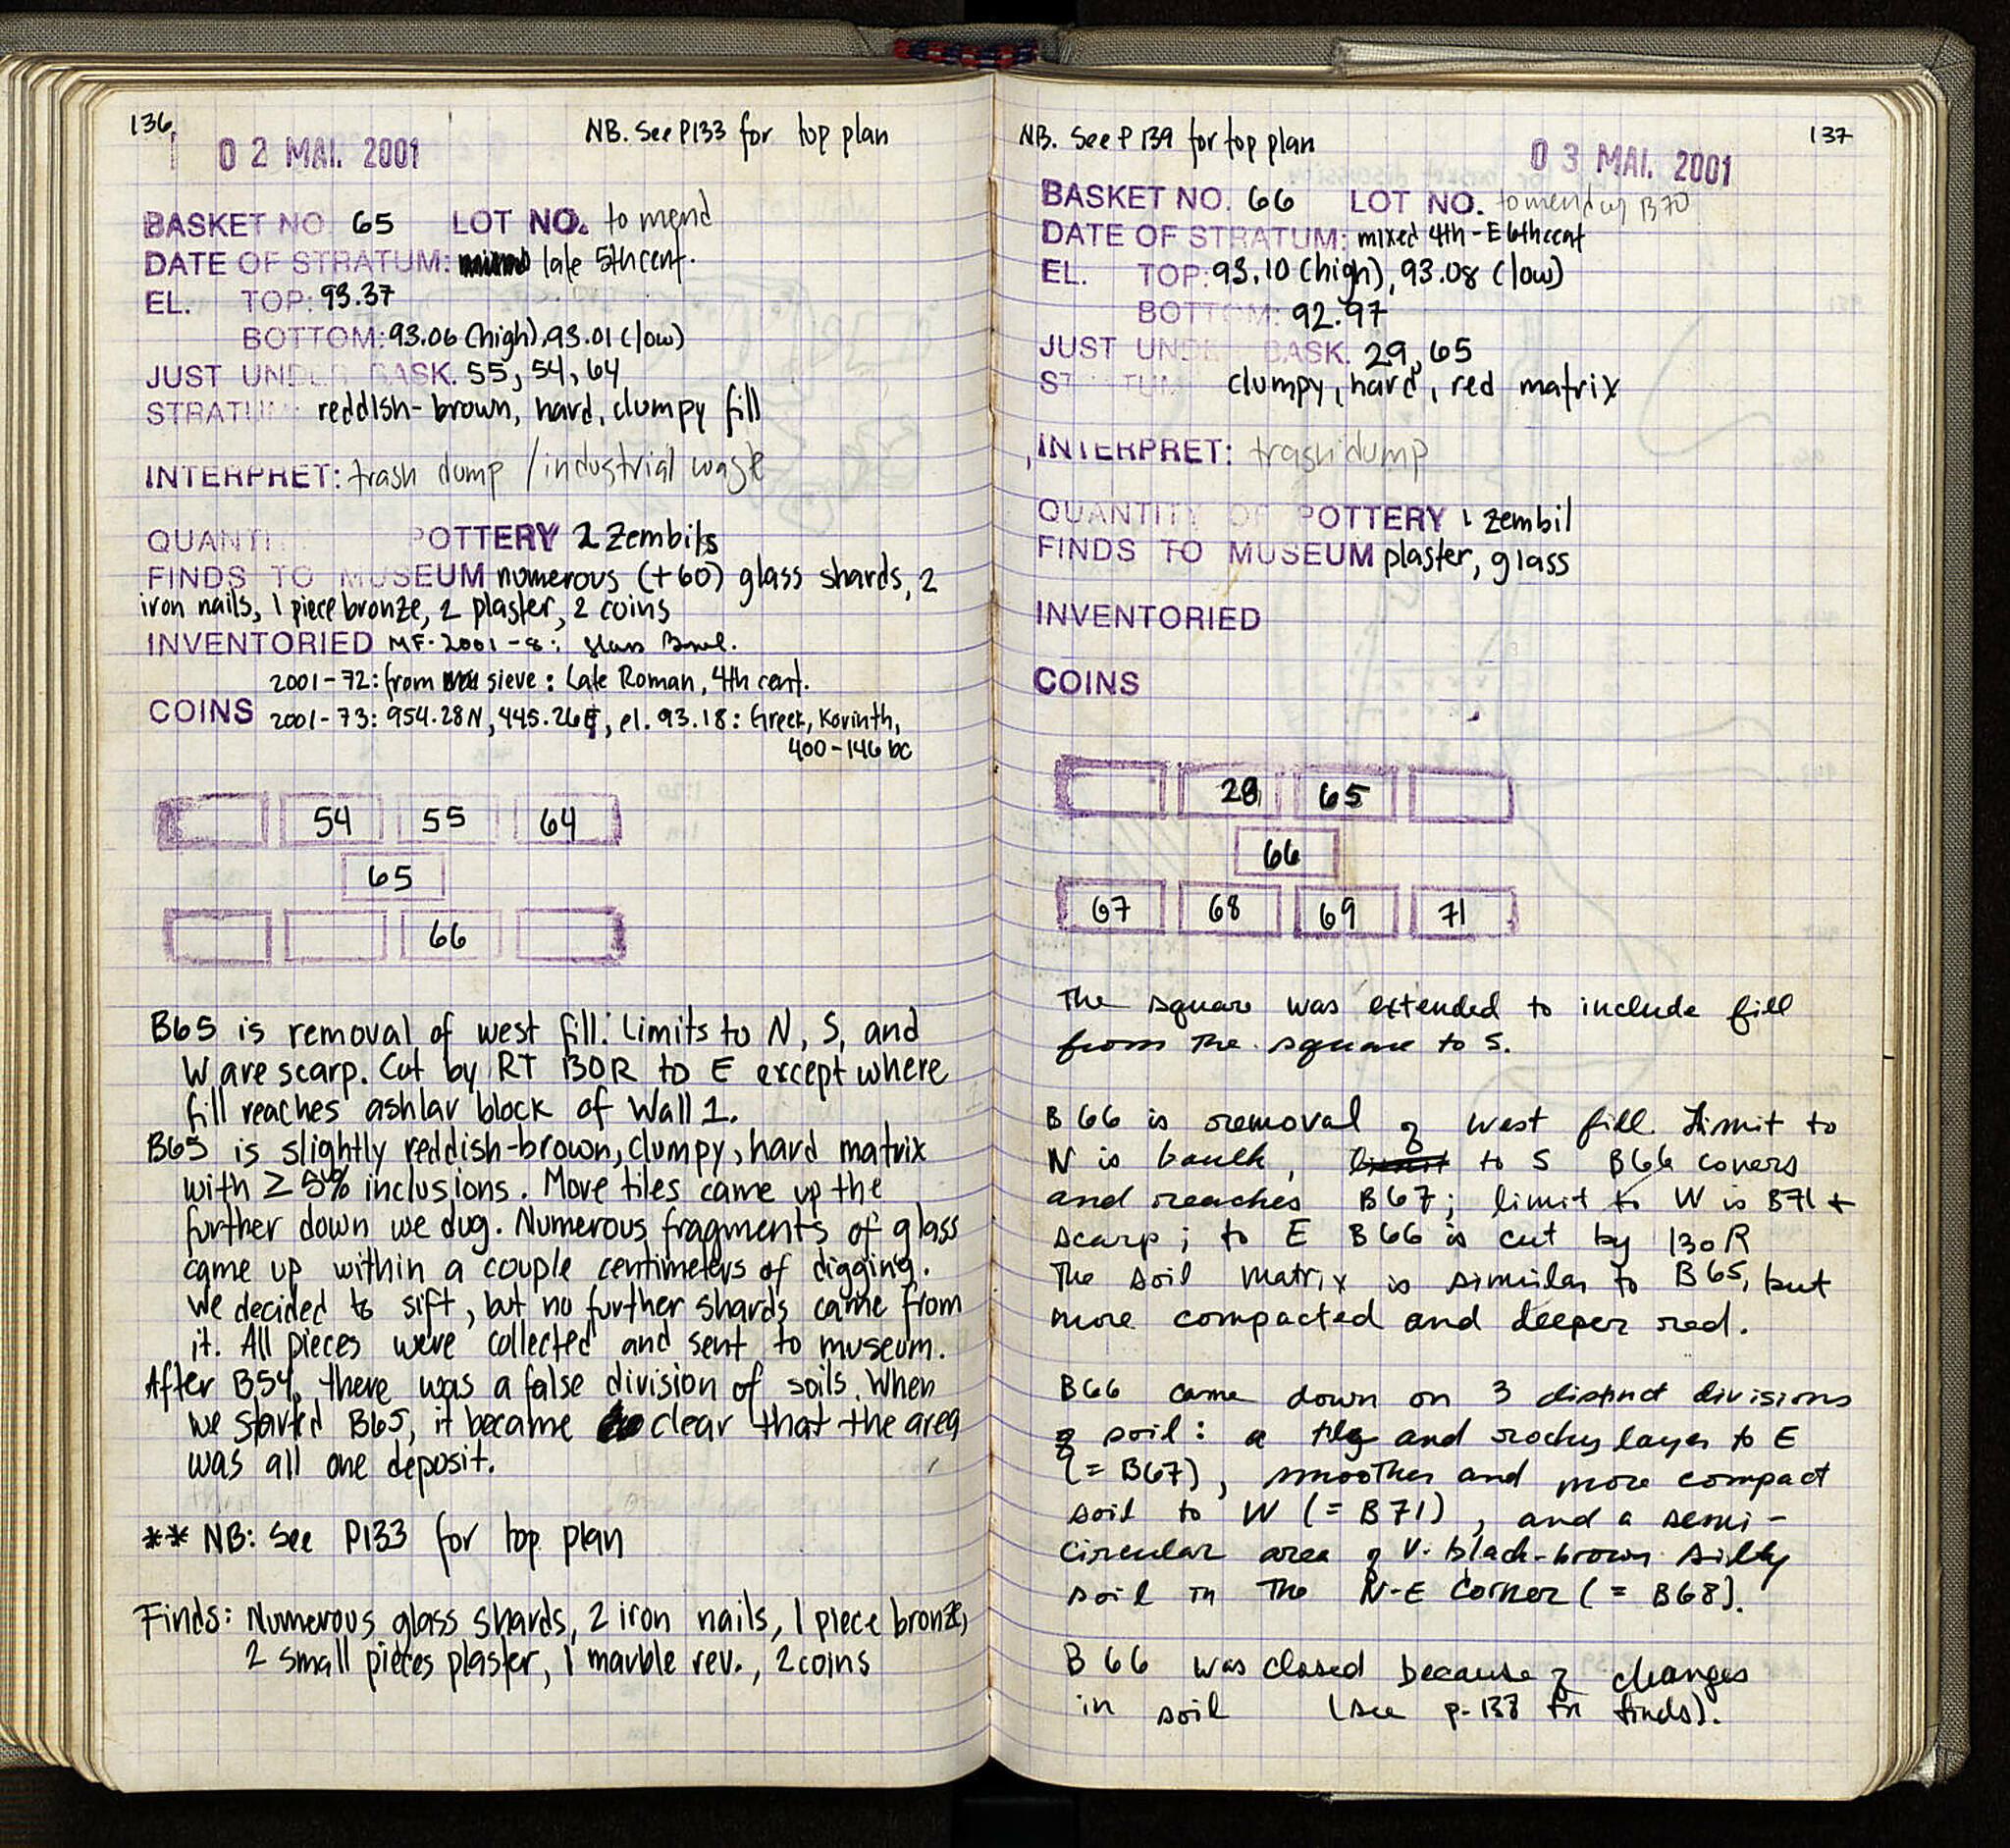 136
02 MAI. 2001
NB. See P133 for top plan
BASKET NO. 65 LOT NO. to mend
DATE OF STRATUM: late 5th cent.
EL. TOP: 93.37
BOTTOM: 93.06 (high), 93.01 (low)
JUST UNDER BASK. 55, 54, 64
STRATUM: reddish-brown, hard, clumpy fill
INTERPRET: trash dump / industrial waste
QUANTI POTTERY 2 Zembils
FINDS TO MUSEUM numerous (+60) glass shards, 2
iron nails, 1 piece bronze, 2 plaster, 2 coins
INVENTORIED MF-2001-8: Glass Bowl.
2001-72: from sieve: Late Roman, 4th cent.
COINS 2001-73: 954.28N, 445.26E, el. 93.18: Greek, Korinth,
400-146 bc
54 55 64
65
66
B65 is removal of west fill. Limits to N, S, and
W are scarp. Cut by RT 130R to E except where
fill reaches ashlar block of Wall 1.
B65 is slightly reddish-brown, clumpy, hard matrix
with ≥ 5% inclusions. More tiles came up the
further down we dug. Numerous fragments of glass
came up within a couple centimeters of digging.
We decided to sift, but no further shards came from
it. All pieces were collected and sent to museum.
After B54, there was a false division of soils. When
we started B65, it became clear that the area
was all one deposit.
** NB: See P133 for top plan
Finds: Numerous glass shards, 2 iron nails, 1 piece bronze,
2 small pieces plaster, 1 marble rev., 2 coins
NB. See P 139 for top plan
03 MAI. 2001
137
BASKET NO. 66 LOT NO. to mend w/ B70
DATE OF STRATUM: mixed 4th-E 6th cent
EL. TOP: 93.10 (high), 93.08 (low)
BOTTOM: 92.97
JUST UNDE BASK. 29, 65
ST TUM clumpy, hard, red matrix
INTERPRET: trash dump
QUANTITY OF POTTERY 1 zembil
FINDS TO MUSEUM plaster, glass
INVENTORIED
COINS
29 65
66
67 68 69 71
The square was extended to include fill
from the square to S.
B66 is removal of west fill. Limit to
N is baulk, limit to S B66 covers
and reaches B67; limit to W is B71 +
scarp; to E B66 is cut by 130R
The soil matrix is similar to B65, but
more compacted and deeper red.
B66 came down on 3 distinct divisions
of soil: a tiley and rocky layer to E
(= B67), smoother and more compact
soil to W (= B71), and a semi-
circular area of v. black-brown silty
soil in the N-E corner (= B68).
B66 was closed because of changes
in soil (see p. 138 for finds).